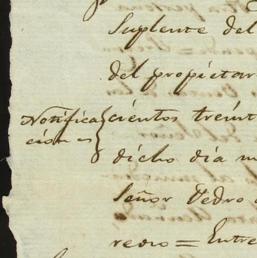 Suplente del
del propietar
Notifica
cion =
cientos treint
dicho dia m
Señor Pedro
redio = Entre